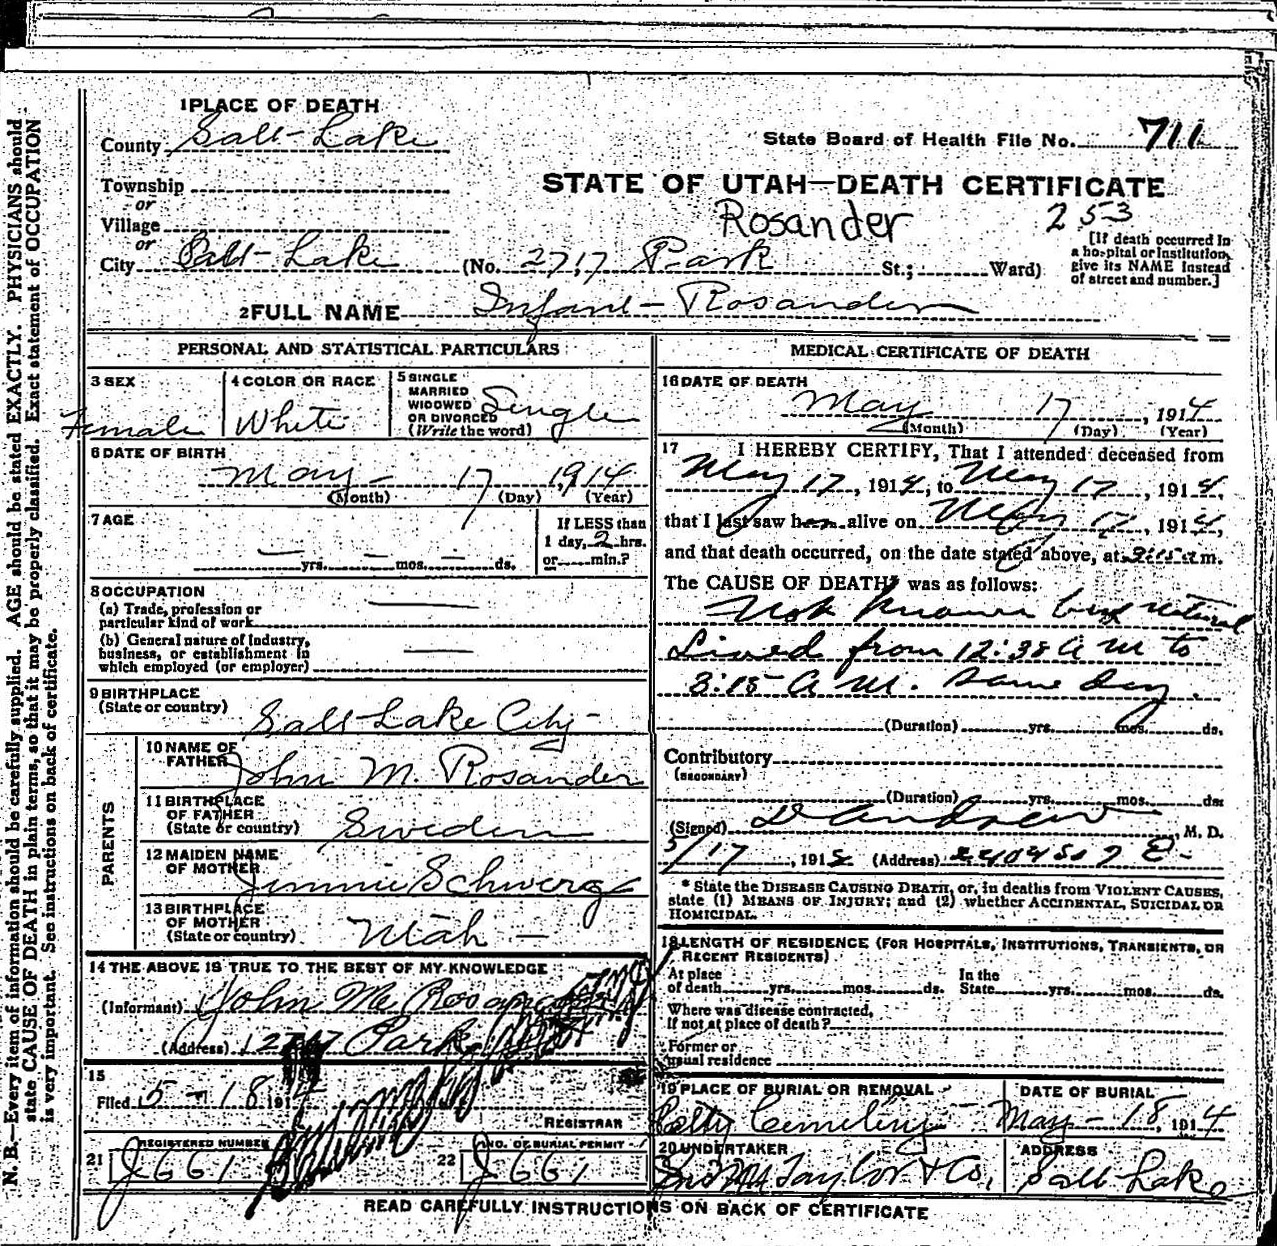 1 PLACE OF DEATH
County Salt Lake
State Board of Health File No. 711
Township
or
STATE OF UTAH—DEATH CERTIFICATE
Village
Rosander 253
or
City Salt Lake (No. 2717 Park St.; Ward)
[If death occurred in a hospital or institution, give its NAME instead of street and number.]
2 FULL NAME Infant Rosander
PERSONAL AND STATISTICAL PARTICULARS
3 SEX Female
4 COLOR OR RACE White
5 SINGLE MARRIED WIDOWED OR DIVORCED (Write the word) Single
6 DATE OF BIRTH
May 17 1914
(Month) (Day) (Year)
7 AGE
— yrs. — mos. — ds.
If LESS than 1 day, 2 hrs. or min.?
8 OCCUPATION
(a) Trade, profession or particular kind of work
(b) General nature of industry, business, or establishment in which employed (or employer)
9 BIRTHPLACE
(State or country) Salt Lake City
PARENTS
10 NAME OF FATHER John M. Rosander
11 BIRTHPLACE OF FATHER (State or country) Sweden
12 MAIDEN NAME OF MOTHER Jimmie
13 BIRTHPLACE OF MOTHER (State or country) Utah
14 THE ABOVE IS TRUE TO THE BEST OF MY KNOWLEDGE
(Informant) John M. Rosander
(Address) 2717 Park
15
Filed 5-18 1914
REGISTRAR
REGISTERED NUMBER
21 J661
NO. OF BURIAL PERMIT
22 J661
MEDICAL CERTIFICATE OF DEATH
16 DATE OF DEATH
May 17, 1914
(Month) (Day) (Year)
17 I HEREBY CERTIFY, That I attended deceased from
May 17, 1914, to May 17, 1914,
that I last saw her alive on May 17, 1914,
and that death occurred, on the date stated above, at 3:15 a m.
The CAUSE OF DEATH* was as follows:
Not known but natural
Lived from 12:38 A M to
3:15 A M. same day.
(Duration) yrs. mos. ds.
Contributory
(SECONDARY)
(Duration) yrs. mos. ds.
(Signed) D Andrew, M. D.
5/17, 191 (Address) 2404 So 7 E-
* State the DISEASE CAUSING DEATH, or, in deaths from VIOLENT CAUSES, state (1) MEANS OF INJURY; and (2) whether ACCIDENTAL, SUICIDAL OR HOMICIDAL.
18 LENGTH OF RESIDENCE (FOR HOSPITALS, INSTITUTIONS, TRANSIENTS, OR RECENT RESIDENTS)
At place of death yrs. mos. ds. In the State yrs. mos. ds.
Where was disease contracted, if not at place of death?
Former or usual residence
19 PLACE OF BURIAL OR REMOVAL
Cemetery
DATE OF BURIAL
May 18, 1914
20 UNDERTAKER
Taylor & Co.
ADDRESS
Salt Lake
READ CAREFULLY INSTRUCTIONS ON BACK OF CERTIFICATE
N. B.—Every item of information should be carefully supplied. AGE should be stated EXACTLY. PHYSICIANS should
state CAUSE OF DEATH in plain terms, so that it may be properly classified. Exact statement of OCCUPATION
is very important. See instructions on back of certificate.